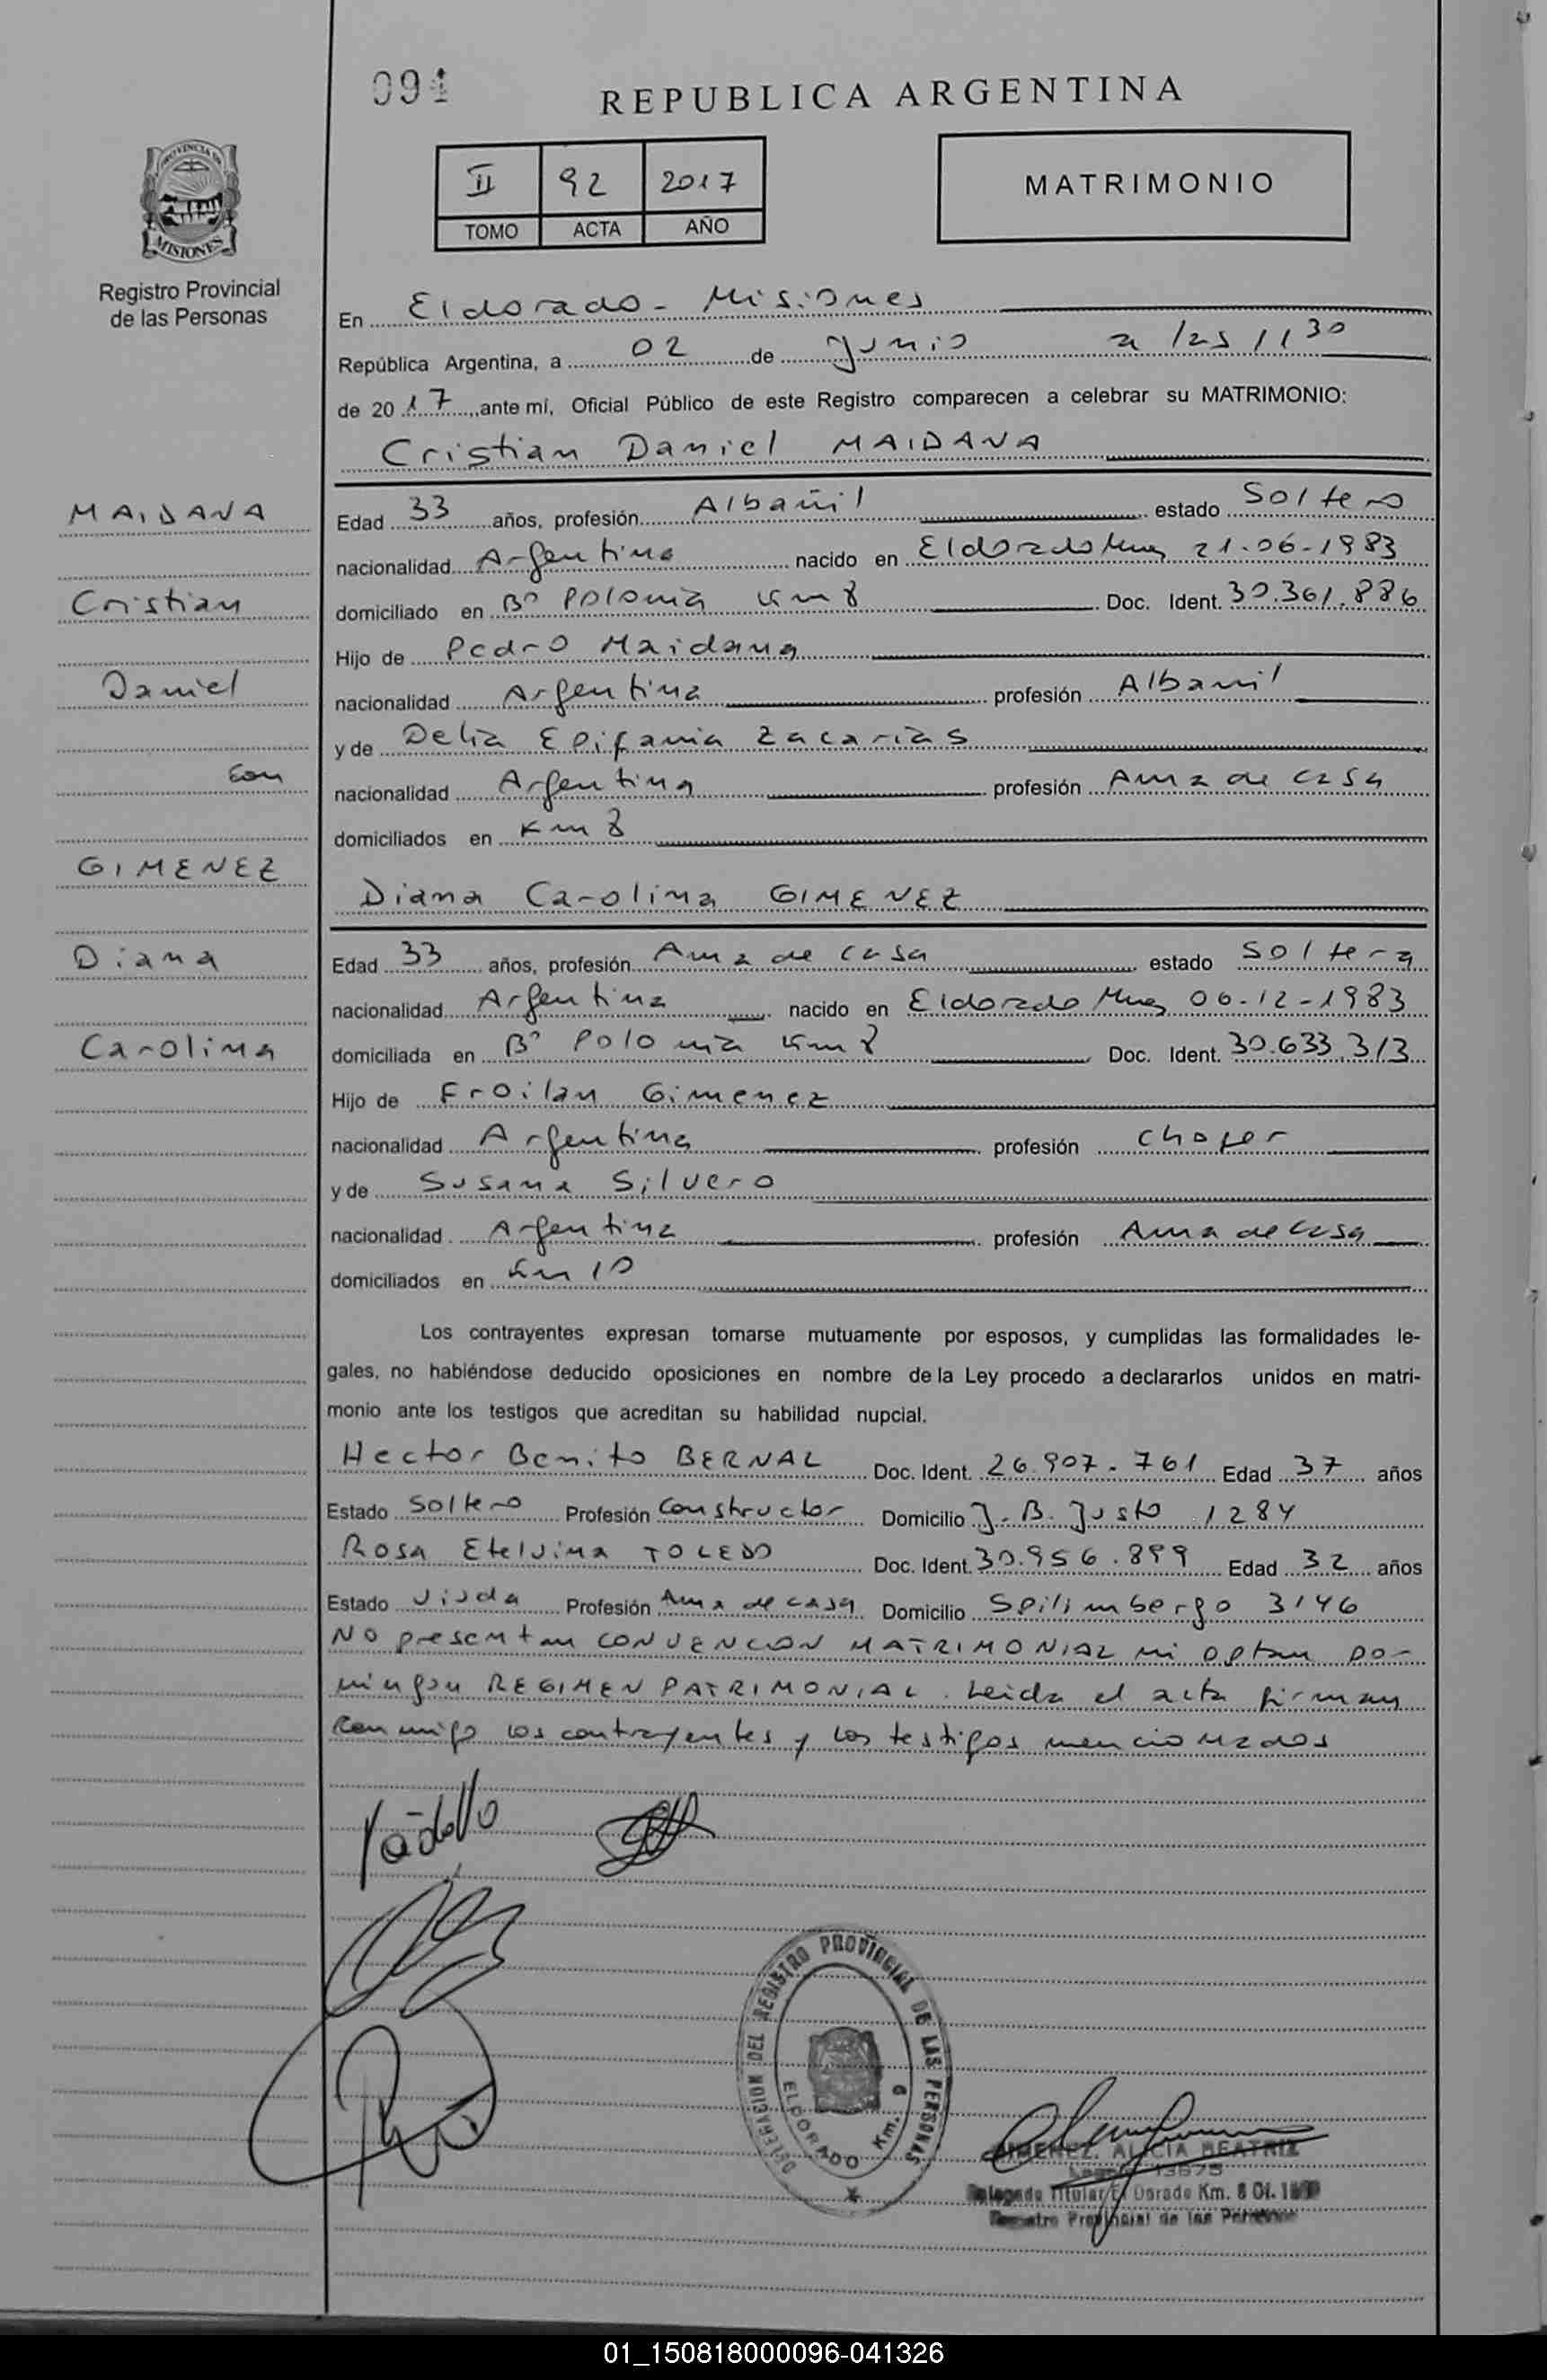 094
REPUBLICA ARGENTINA
PROVINCIA DE
MISIONES
Registro Provincial
de las Personas
II 92 2017
TOMO ACTA AÑO
MATRIMONIO
En Eldorado - Misiones
República Argentina, a 02 de Junio a las 11 30
de 2017, ante mí, Oficial Público de este Registro comparecen a celebrar su MATRIMONIO:
Cristian Daniel MAIDANA
MAIDANA
Cristian
Daniel
con
GIMENEZ
Diana
Carolina
Edad 33 años, profesión Albañil estado Soltero
nacionalidad Argentina nacido en Eldorado Mnes 21-06-1983
domiciliado en Bº Polonia Km 8 Doc. Ident. 30.361.886
Hijo de Pedro Maidana
nacionalidad Argentina profesión Albanil
y de Delia Epifania Zacarias
nacionalidad Argentina profesión Ama de casa
domiciliados en Km 8
Diana Carolina GIMENEZ
Edad 33 años, profesión Ama de casa estado Soltera
nacionalidad Argentina nacido en Eldorado Mnes 06-12-1983
domiciliada en Bº Polonia Km 8 Doc. Ident. 30.633.313
Hijo de Froilan Gimenez
nacionalidad Argentina profesión chofer
y de Susana Silvero
nacionalidad Argentina profesión Ama de casa
domiciliados en Km 10
Los contrayentes expresan tomarse mutuamente por esposos, y cumplidas las formalidades le-
gales, no habiéndose deducido oposiciones en nombre de la Ley procedo a declararlos unidos en matri-
monio ante los testigos que acreditan su habilidad nupcial.
Hector Benito BERNAL Doc. Ident. 26.907.761 Edad 37 años
Estado Soltero Profesión Constructor Domicilio J. B. Justo 1284
Rosa Etelvina TOLEDO Doc. Ident. 30.956.899 Edad 32 años
Estado Viuda Profesión Ama de casa Domicilio Spilimbergo 3146
No presentan CONVENCION MATRIMONIAL ni optan por
ningun REGIMEN PATRIMONIAL. Leida el acta firman
conmigo los contrayentes y los testigos mencionados
DELEGACION DEL REGISTRO PROVINCIAL DE LAS PERSONAS
ELDORADO Km. 6
GIMENEZ, ALICIA BEATRIZ
13675
Delegada Titular El Dorado Km. 6 Of.
Registro Provincial de las Personas
01_150818000096-041326